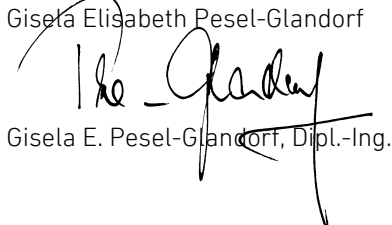 Gisela Elisabeth Pesel-Glandorf
Gisela E. Pesel-Glandorf, Dipl.-Ing.